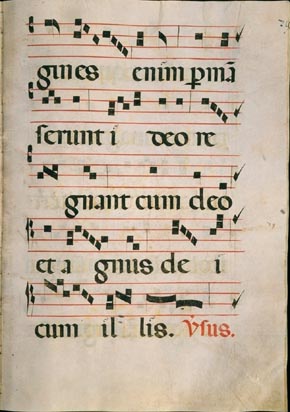 gines enim pmã
serunt i deo re
gnant cum deo
et a gnus de i
cum il lis. V̆sus.